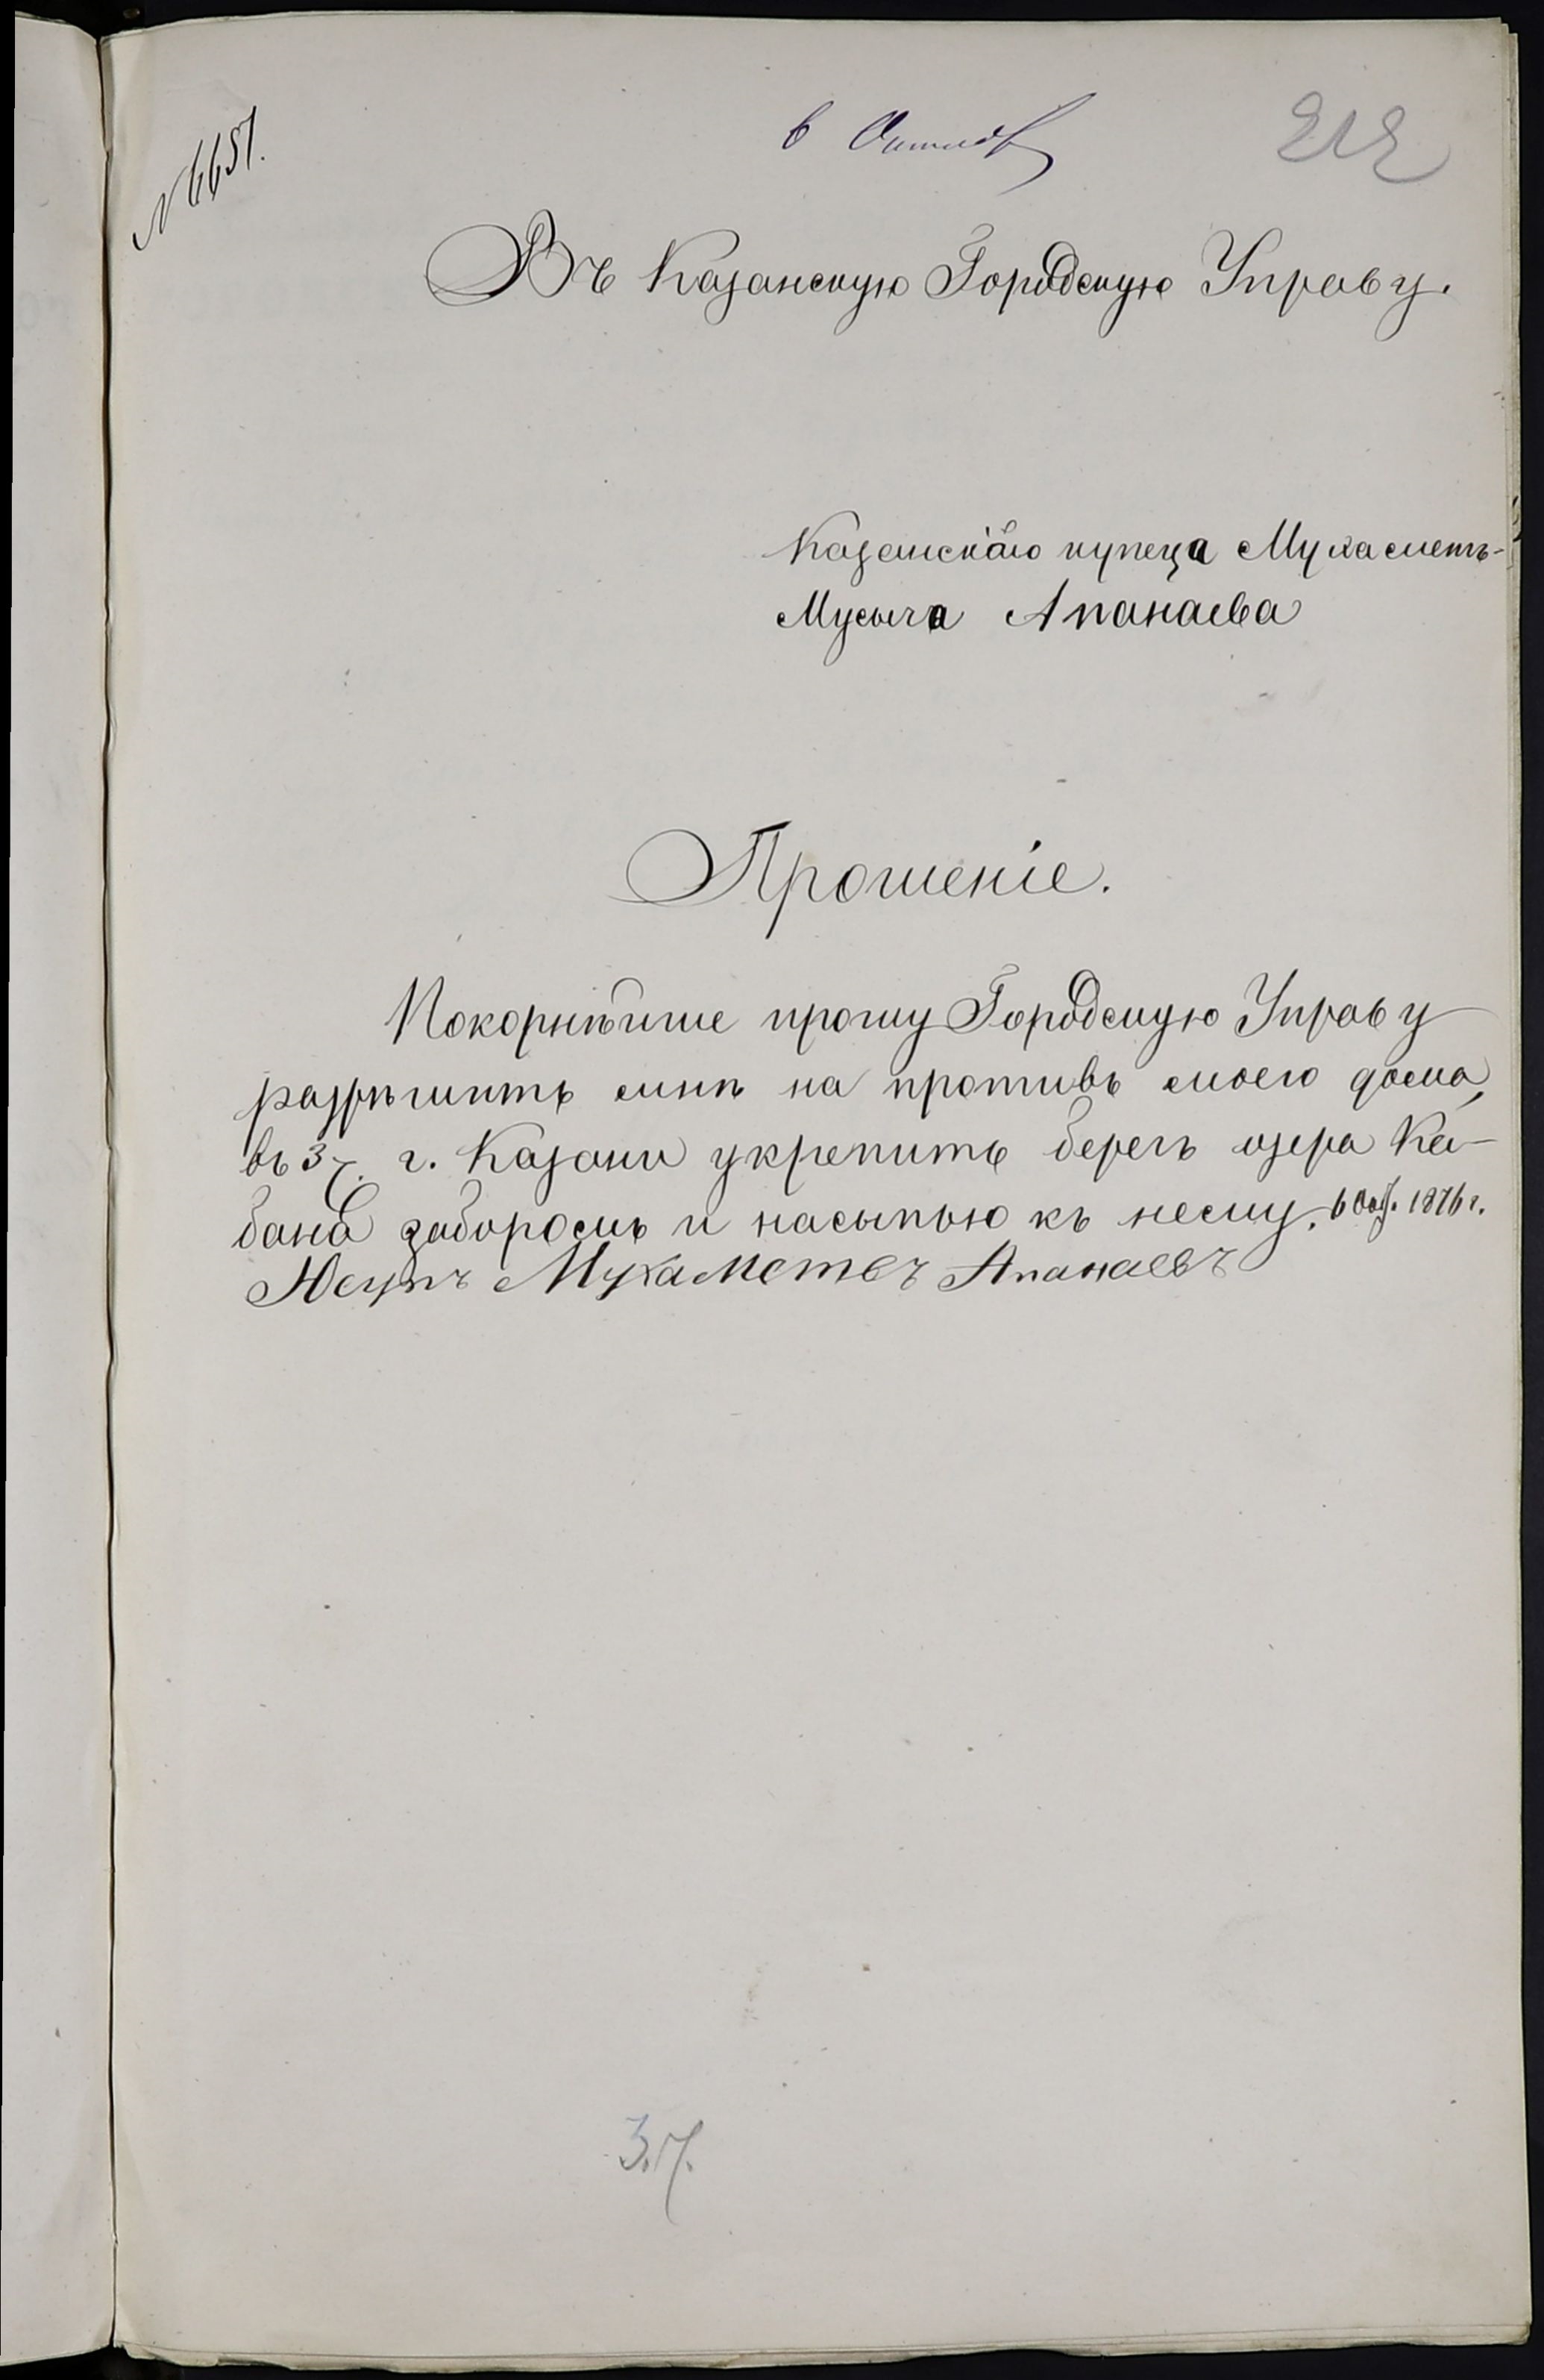 № 6651.
6 Октября
212
Въ Казанскую Городскую Управу.
Казанскаго купеца Мухаметъ-
Мусыча Апанаева
Прошеніе.
Покорнѣйше прошу Городскую Управу
разрѣшить мнѣ на противъ моего дома,
въ 3 ч. г. Казани укрепить берегъ озера Ка-
бана заборомъ и насыпью къ нему. 6 Окт. 1876 г.
Юсупъ Мухаметевъ Апанаевъ
3 Ч.